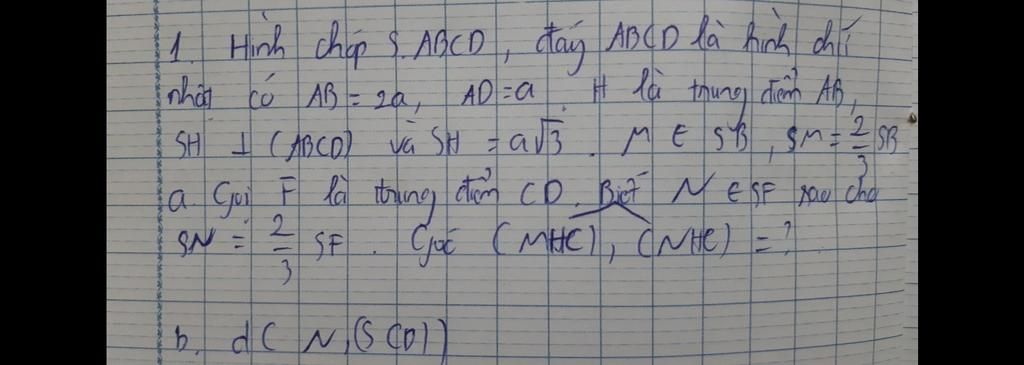 1. Hình chóp S.ABCD, đáy ABCD là hình chữ
nhật có AB = 2a, AD = a H là trung điểm AB,
SH ⊥ (ABCD) và SH = a√3. M ∈ SB, SM = 2/3 SB
a. Gọi F là trung điểm CD. Biết N ∈ SF sao cho
SN = 2/3 SF. Góc (MHC), (NHC) = ?
b. d(N,(SCD))